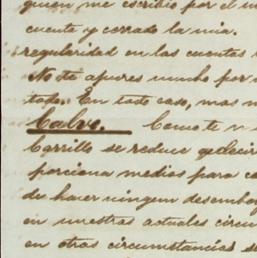 quien me escribió por el
cuenta y cerrado la mia.
regularidad en las cuentas
No te apures mucho por
todo. En todo caso, mas
Calvo. Como te
Carrillo se reduce a decir
porciona medios para
de hacer ningun desembo
en nuestras actuales circun
en otras circunstancias se